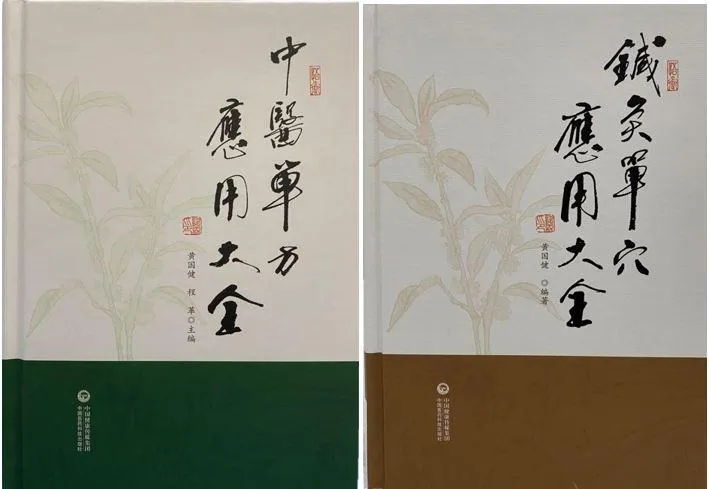 中醫單方
應用大全
黄国健 程革◎主编
中国健康传媒集团
中国医药科技出版社
鍼灸單穴
應用大全
黄国健◎编著
中国健康传媒集团
中国医药科技出版社